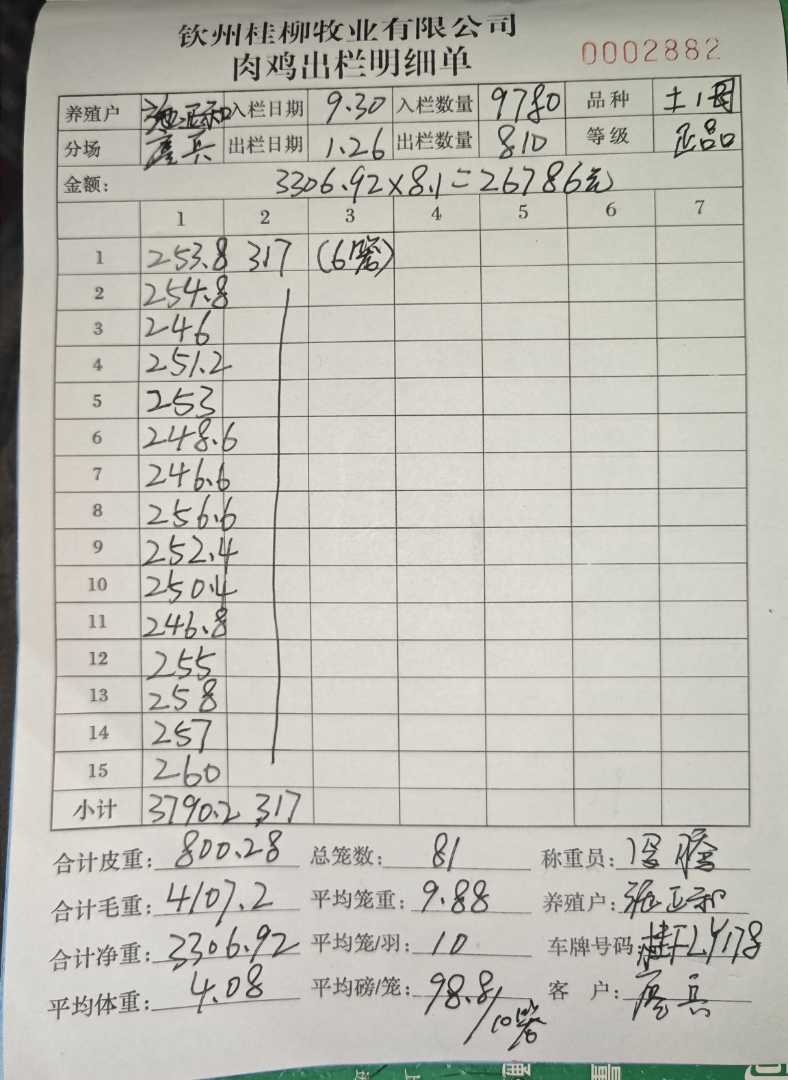 钦州桂柳牧业有限公司
肉鸡出栏明细单 0002882
养殖户 入栏日期 9.30 入栏数量 9780 品种 土1母
分场 廖兵 出栏日期 1.26 出栏数量 810 等级 正品
金额: 3306.92×8.1=26786元
1 2 3 4 5 6 7
1 253.8 317 (6笼)
2 254.8
3 246
4 251.2
5 253
6 248.6
7 246.6
8 256.6
9 252.4
10 250.4
11 246.8
12 255
13 258
14 257
15 260
小计 3790.2 317
合计皮重: 800.28 总笼数: 81 称重员:
合计毛重: 4107.2 平均笼重: 9.88 养殖户:
合计净重: 3306.92 平均笼/羽: 10 车牌号码: 桂FLY178
平均体重: 4.08 平均磅/笼: 98.8/10笼 客 户: 廖兵